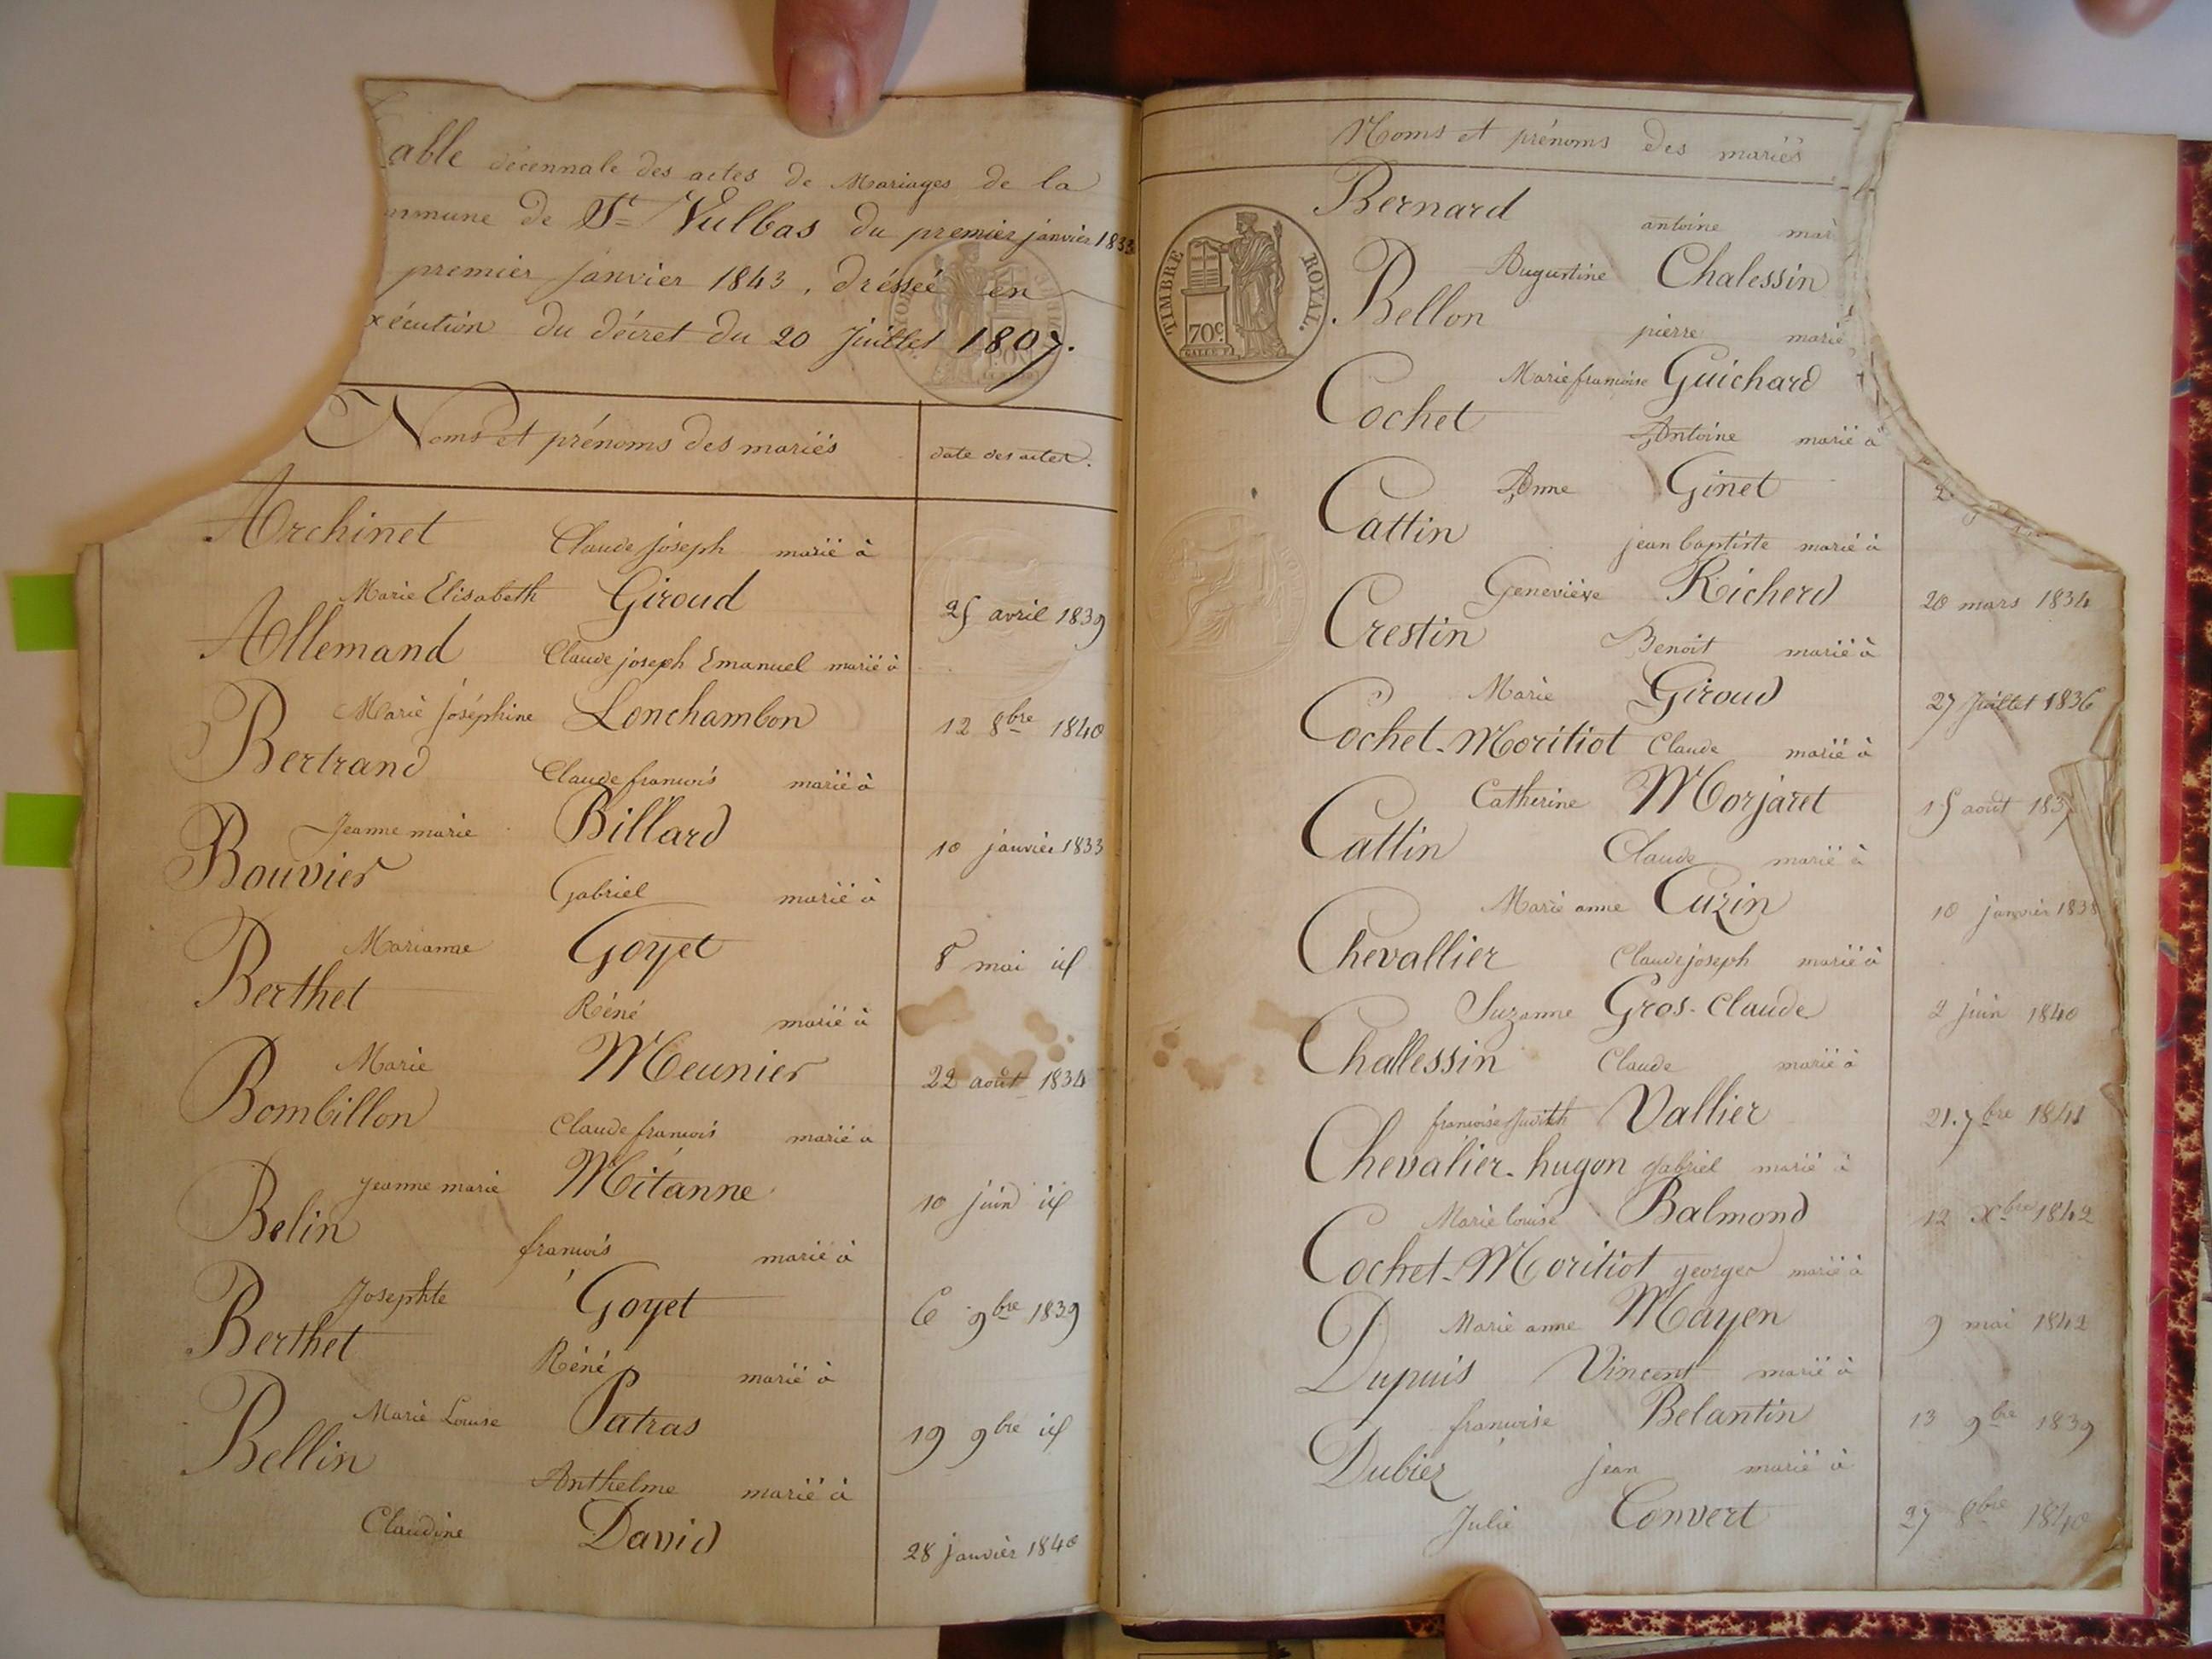 able décennale des actes de Mariages de la
mmune de St Vulbas du premier janvier 1833
premier janvier 1843, dréssée en
xécution du décret du 20 Juillet 1807.
Noms et prénoms des mariés
date des actes.
Archinet Claude joseph marié à
Marie Elisabeth Giroud 25 avril 1839
Allemand Claude joseph Emanuel marié à
Marie Joséphine Lonchambon 12 8bre 1840
Bertrand Claude francois marié à
Jeanne marie Billard 10 janvier 1833
Bouvier Gabriel marié à
Marianne Goyet 8 mai id
Berthet Réné marié à
Marie Meunier 22 août 1834
Bombillon Claude francois marié à
Jeanne marie Mitanne 10 juin id
Belin francois marié à
Josephte Goyet 6 9bre 1839
Berthet Réné marié à
Marie Louise Patras 19 9bre id
Bellin Anthelme marié à
Claudine David 28 janvier 1840
Noms et prénoms des mariés
TIMBRE ROYAL.
70c
Bernard antoine mar
Augustine Chalessin
Bellon pierre marié
Marie francoise Guichard
Cochet Antoine marié à
Anne Ginet 2
Cattin jean baptiste marié à
Geneviève Richerd 20 mars 1834
Crestin Benoit marié à
Marie Giroud 27 Juillet 1836
Cochet-Moritiot Claude marié à
Catherine Morjaret 15 août 183
Cattin Claude marié à
Marie anne Cuzin 10 janvier 1838
Chevallier Claude joseph marié à
Suzanne Gros-Claude 2 juin 1840
Challessin Claude marié à
francoise Judith Vallier 21. 7bre 1841
Chevalier-hugon gabriel marié à
Marie louise Balmond 12 Xbre 1842
Cochet-Moritiot george marié à
Marie anne Mayen 9 mai 1842
Dupuis Vincent marié à
francoise Belantin 13 9bre 1839
Dubiez jean marié à
Julie Convert 27 8bre 1840